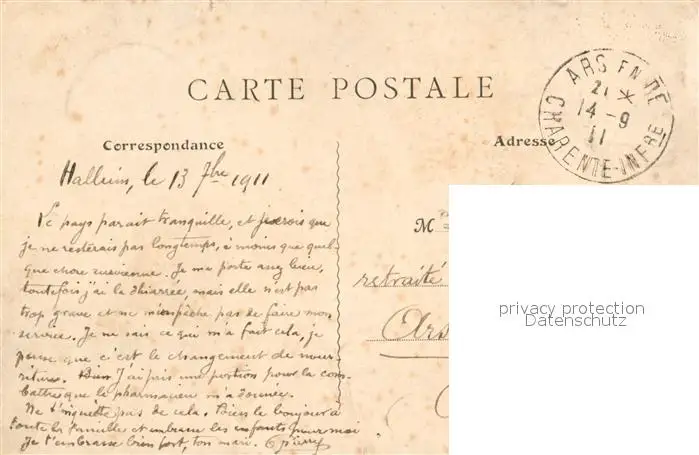 CARTE POSTALE
ARS EN RÉ
21 *
14 - 9
11
CHARENTE-INFRE
Correspondance
Adresse
Halluin, le 13 7bre 1911
Le pays parait tranquille, et je crois que
je ne resterais pas longtemps, à moins que quel-
que chose survienne. Je me porte assez bien,
toutefois j'ai la diarrée, mais elle n'est pas
trop grave et ne m'empêche pas de faire mon
service. Je ne sais ce qui m'a fait cela, je
pense que c'est le changement de nour-
riture. Bien J'ai pris une potion pour la com-
battre que le pharmacien m'a donnée.
Ne t'inquiette pas de cela. Bien le bonjour à
toute la famille et embrasse les enfants pour moi
Je t'embrasse bien fort, ton mari. Pierre
M
retraité
Ars
privacy protection
Datenschutz